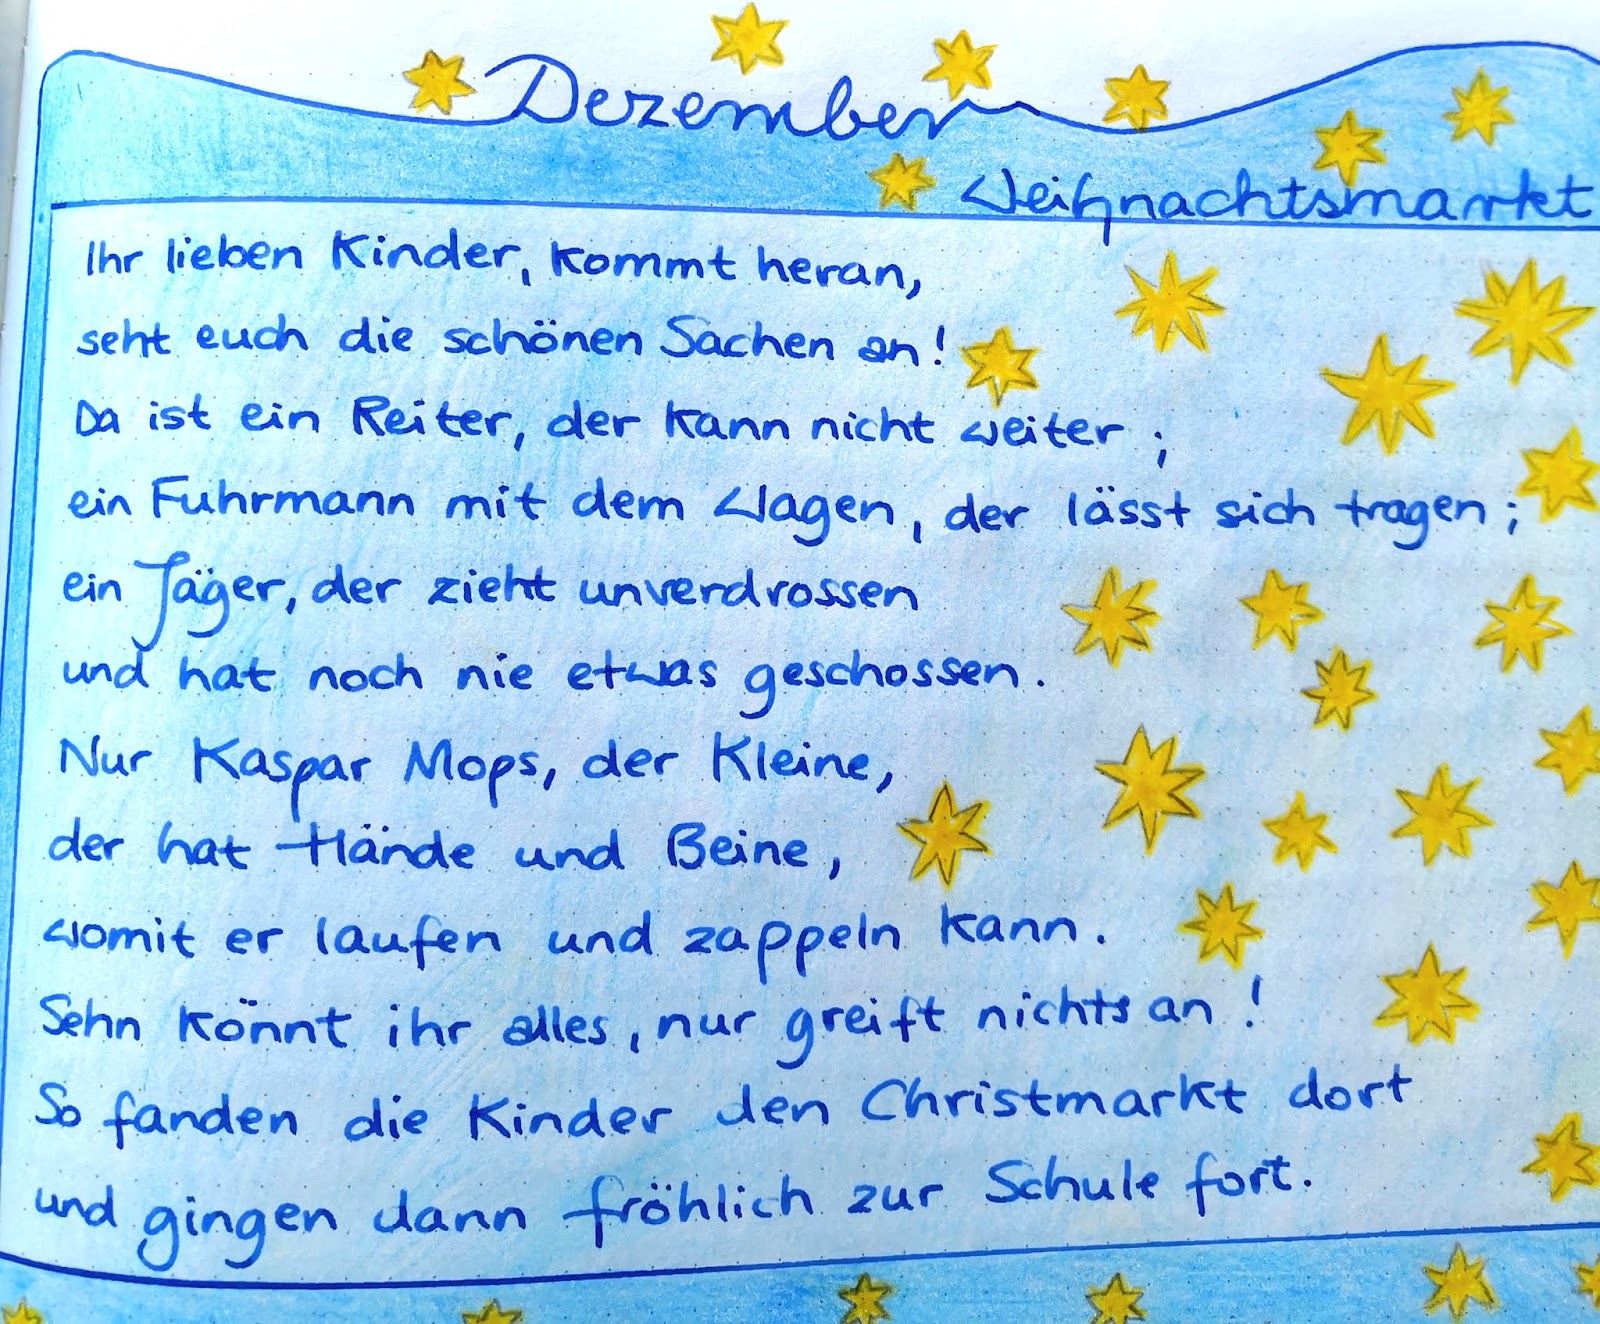 Dezember
Weihnachtsmarkt
Ihr lieben Kinder, kommt heran,
seht euch die schönen Sachen an!
Da ist ein Reiter, der kann nicht weiter;
ein Fuhrmann mit dem Wagen, der lässt sich tragen;
ein Jäger, der zieht unverdrossen
und hat noch nie etwas geschossen.
Nur Kaspar Mops, der Kleine,
der hat Hände und Beine,
womit er laufen und zappeln kann.
Sehn könnt ihr alles, nur greift nichts an!
So fanden die Kinder den Christmarkt dort
und gingen dann fröhlich zur Schule fort.